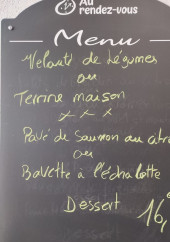 Au
rendez-vous
Menu
Velouté de Légumes
ou
Terrine maison
Pavé de Saumon au citr
ou
Bavette à l'échalotte
Dessert 16,